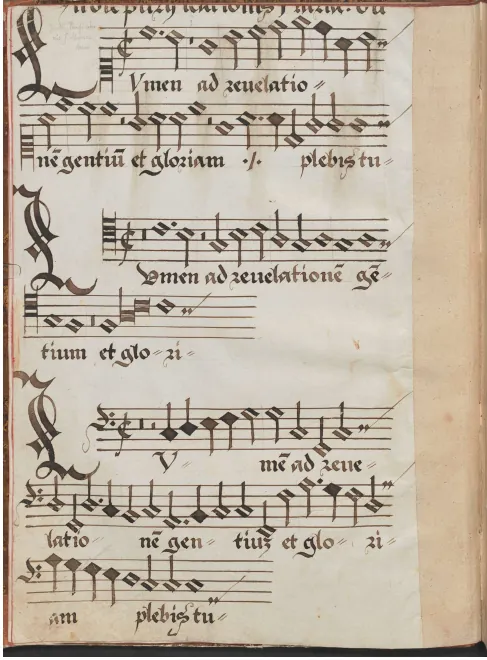 Lumen ad reuelatio⸗
nē gentiū et gloriam ·/· plebis tu⸗
Lumen ad reuelationē gē⸗
tium et glo⸗ ri⸗
LV⸗ mē ad reue⸗
latio⸗ nē gen⸗ tiuʒ et glo⸗ ri⸗
am plebis tu⸗